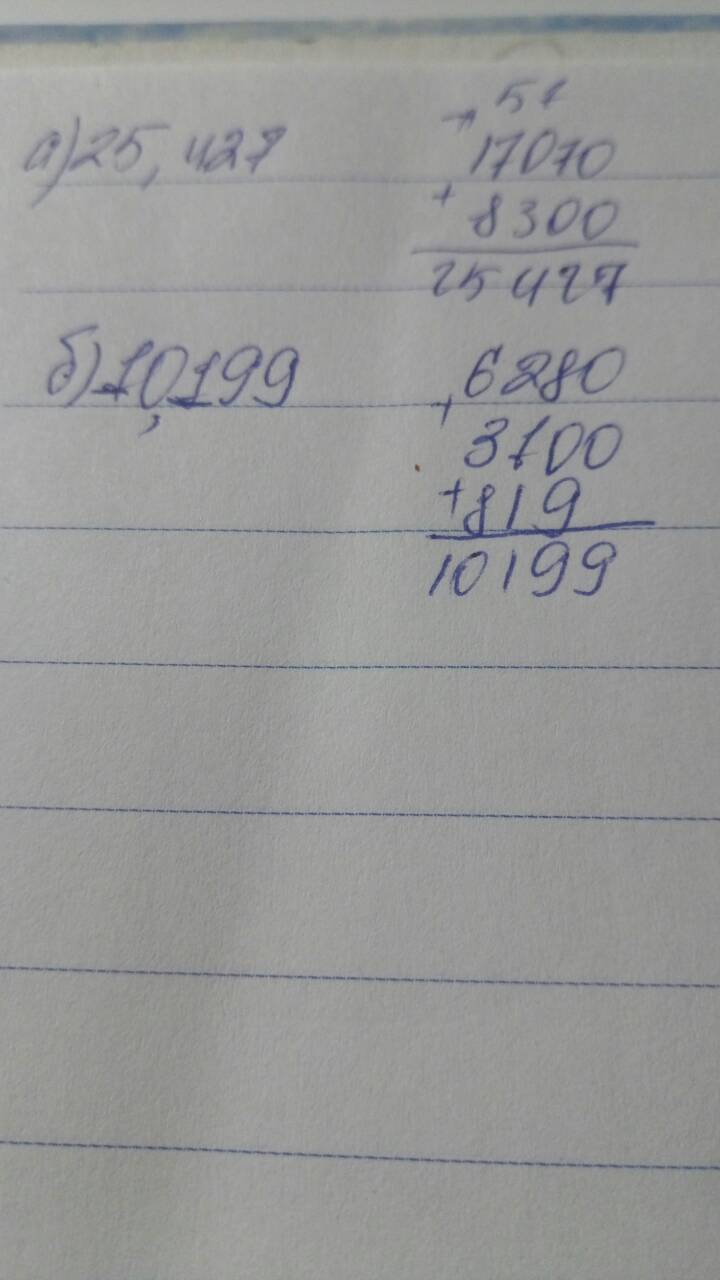 а) 25,427
57
+
17070
+ 8300
25427
б) 10,199
6280
+
3100
+ 819
10199